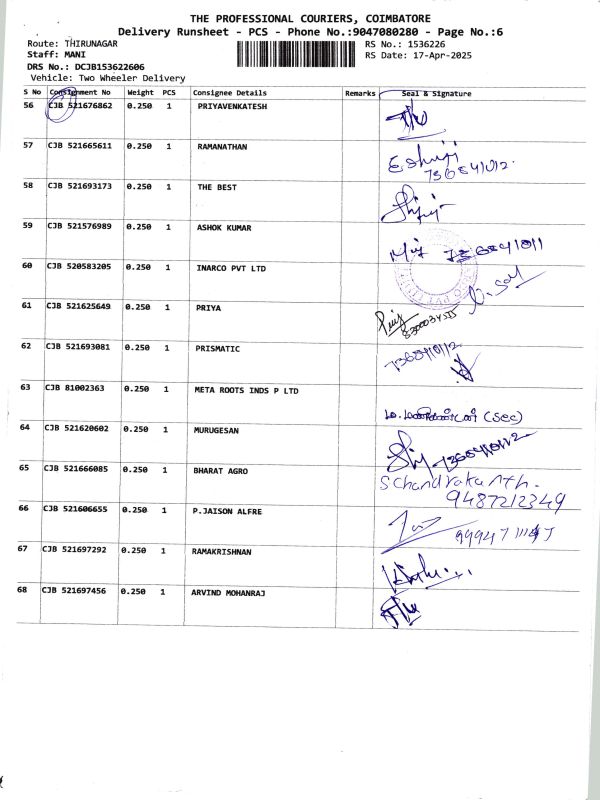 THE PROFESSIONAL COURIERS, COIMBATORE
Delivery Runsheet - PCS - Phone No.:9047080280 - Page No.:6
Route: THIRUNAGAR RS No.: 1536226
Staff: MANI RS Date: 17-Apr-2025
DRS No.: DCJB153622606
Vehicle: Two Wheeler Delivery
S No Consignment No Weight PCS Consignee Details Remarks Seal & Signature
56 CJB 521676862 0.250 1 PRIYAVENKATESH
57 CJB 521665611 0.250 1 RAMANATHAN
58 CJB 521693173 0.250 1 THE BEST
59 CJB 521576989 0.250 1 ASHOK KUMAR
60 CJB 520583205 0.250 1 INARCO PVT LTD
61 CJB 521625649 0.250 1 PRIYA
62 CJB 521693081 0.250 1 PRISMATIC
63 CJB 81002363 0.250 1 META ROOTS INDS P LTD
(Sec)
64 CJB 521620602 0.250 1 MURUGESAN
65 CJB 521666085 0.250 1 BHARAT AGRO S Chandrakanth.
9487212349
66 CJB 521606655 0.250 1 P.JAISON ALFRE
67 CJB 521697292 0.250 1 RAMAKRISHNAN
68 CJB 521697456 0.250 1 ARVIND MOHANRAJ